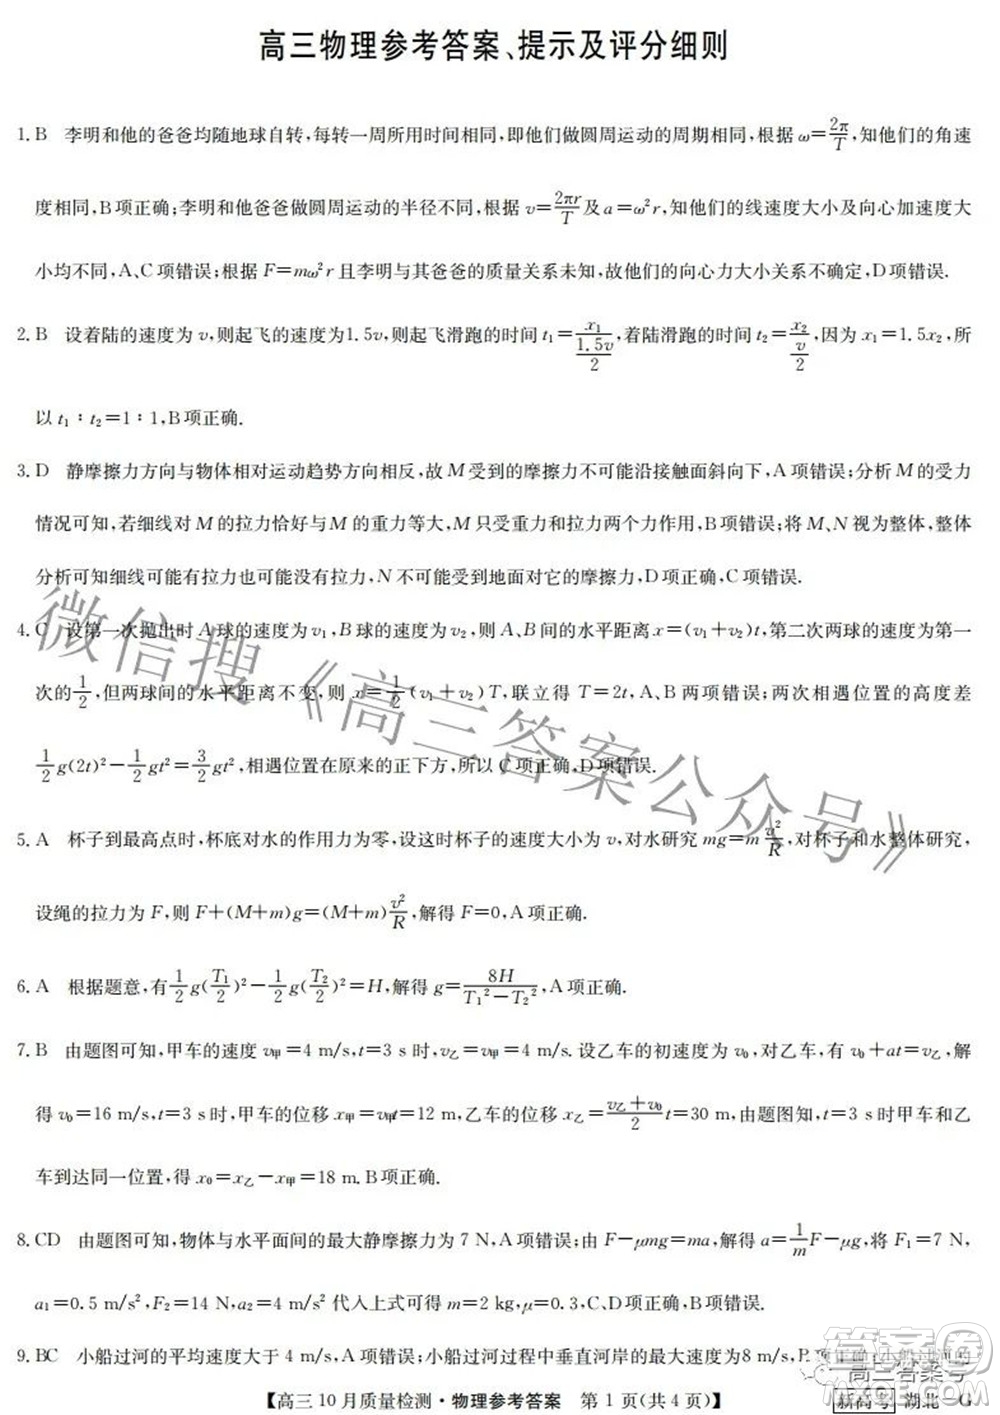 高三物理参考答案、提示及评分细则
1. B 李明和他的爸爸均随地球自转,每转一周所用时间相同,即他们做圆周运动的周期相同,根据 ω=2π/T,知他们的角速
度相同,B项正确;李明和他爸爸做圆周运动的半径不同,根据 v=2πr/T 及 a=ω²r,知他们的线速度大小及向心加速度大
小均不同,A、C项错误;根据 F=mω²r 且李明与其爸爸的质量关系未知,故他们的向心力大小关系不确定,D项错误.
2. B 设着陆的速度为 v,则起飞的速度为1.5v,则起飞滑跑的时间 t₁=x₁/(1.5v/2),着陆滑跑的时间 t₂=x₂/(v/2),因为 x₁=1.5x₂,所
以 t₁∶t₂=1∶1,B项正确.
3. D 静摩擦力方向与物体相对运动趋势方向相反,故 M 受到的摩擦力不可能沿接触面斜向下,A项错误;分析 M 的受力
情况可知,若细线对 M 的拉力恰好与 M 的重力等大,M 只受重力和拉力两个力作用,B项错误;将 M、N 视为整体,整体
分析可知细线可能有拉力也可能没有拉力,N 不可能受到地面对它的摩擦力,D项正确,C项错误.
4. C 设第一次抛出时 A 球的速度为 v₁,B 球的速度为 v₂,则 A、B 间的水平距离 x=(v₁+v₂)t,第二次两球的速度为第一
次的 1/2,但两球间的水平距离不变,则 x=1/2(v₁+v₂)T,联立得 T=2t,A、B 两项错误;两次相遇位置的高度差
1/2g(2t)²−1/2gt²=3/2gt²,相遇位置在原来的正下方,所以 C项正确,D项错误.
5. A 杯子到最高点时,杯底对水的作用力为零,设这时杯子的速度大小为 v,对水研究 mg=m v²/R,对杯子和水整体研究,
设绳的拉力为 F,则 F+(M+m)g=(M+m)v²/R,解得 F=0,A项正确.
6. A 根据题意,有 1/2g(T₁/2)²−1/2g(T₂/2)²=H,解得 g=8H/(T₁²−T₂²),A项正确.
7. B 由题图可知,甲车的速度 v甲=4 m/s,t=3 s 时,v乙=4 m/s. 设乙车的初速度为 v₀,对乙车,有 v₀+at=v乙,解
得 v₀=16 m/s,t=3 s时,甲车的位移 x甲=v甲t=12 m,乙车的位移 x乙=(v乙+v₀)/2 t=30 m,由题图知,t=3 s时甲车和乙
车到达同一位置,得 x₀=x乙−x甲=18 m,B项正确.
8. CD 由题图可知,物体与水平面间的最大静摩擦力为 7 N,A项错误;由 F−μmg=ma,解得 a=1/m F−μg,将 F₁=7 N,
a₁=0.5 m/s²,F₂=14 N,a₂=4 m/s² 代入上式可得 m=2 kg,μ=0.3,C、D项正确,B项错误.
9. BC 小船过河的平均速度大于 4 m/s,A项错误;小船过河过程中垂直河岸的最大速度为8 m/s,B项正确;小船过河的
【高三10月质量检测·物理参考答案 第1页(共4页)】 新高考 湖北-G
微信搜《高三答案公众号》
高三答案号
答案圈